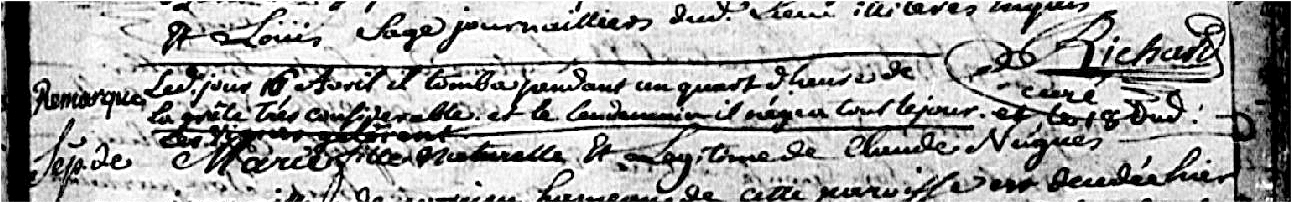 Et Loüis Sage journailliers dud. Lieu illiteres requis
Richard
curé
Remarque Led. jour 16 Avril il tomba pendant un quart d'heure de
la grêle trés considerable. et le lendemain il négea tout le jour. et le 18 dud:
les vignes gélérent
Sep. de Marie fille Naturelle Et Legitime de Claude Nugues
hameau de cette paroisse